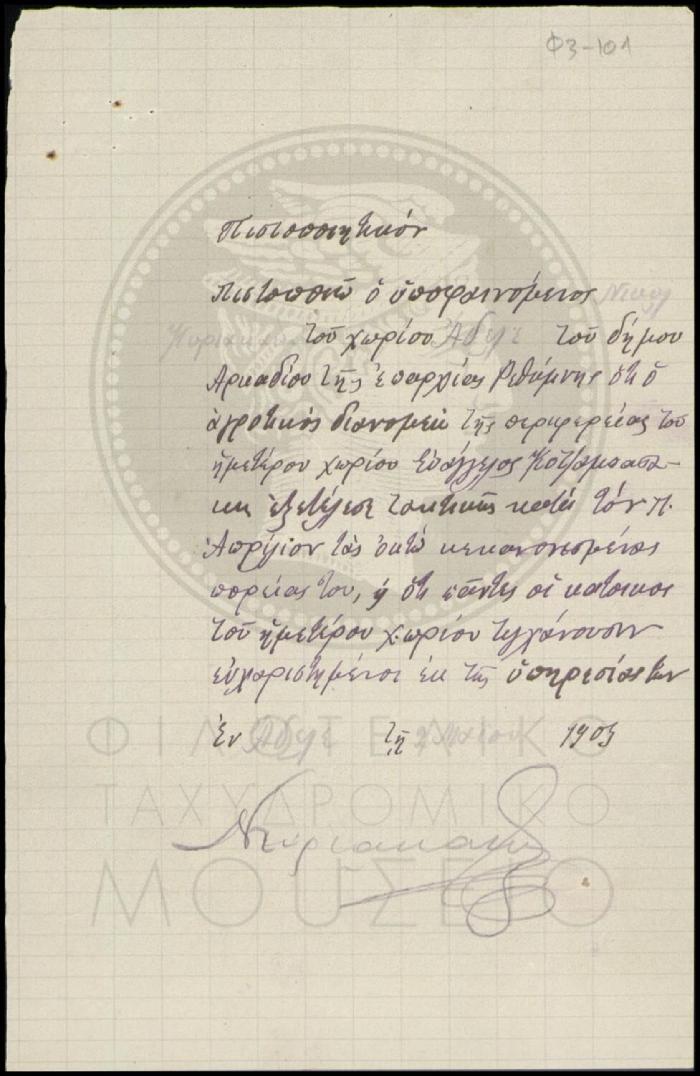 Φ3-101
Πιστοποιητικόν
Πιστοποιῶ ὁ ὑποφαινόμενος Νικολ
Κυριακακ τοῦ χωρίου Ἄδελε τοῦ δήμου
Αρκαδίου τῆς ἐπαρχίας Ρεθύμνης ὅτι ὁ
ἀγροτικός διανομεύς τῆς περιφερείας τοῦ
ἡμετέρου χωρίου Εὐάγγελος Κοτζαμπασα-
κης ἐξετέλεσε τακτικῶς κατά τόν π.
Ἀπρίλιον τάς ὀκτώ κεκανονισμένας
πορείας του, ἡ ὅτι πάντες οἱ κάτοικοι
τοῦ ἡμετέρου χωρίου τυγχάνουσιν
εὐχαριστημένοι ἐκ τῆς ὑπηρεσίας των
Ἐν Ἄδελε τῇ Μαΐου 1905
Ν Κυριακακης
ΦΙΛΟΤΕΛΙΚΟ
ΤΑΧΥΔΡΟΜΙΚΟ
ΜΟΥΣΕΙΟ